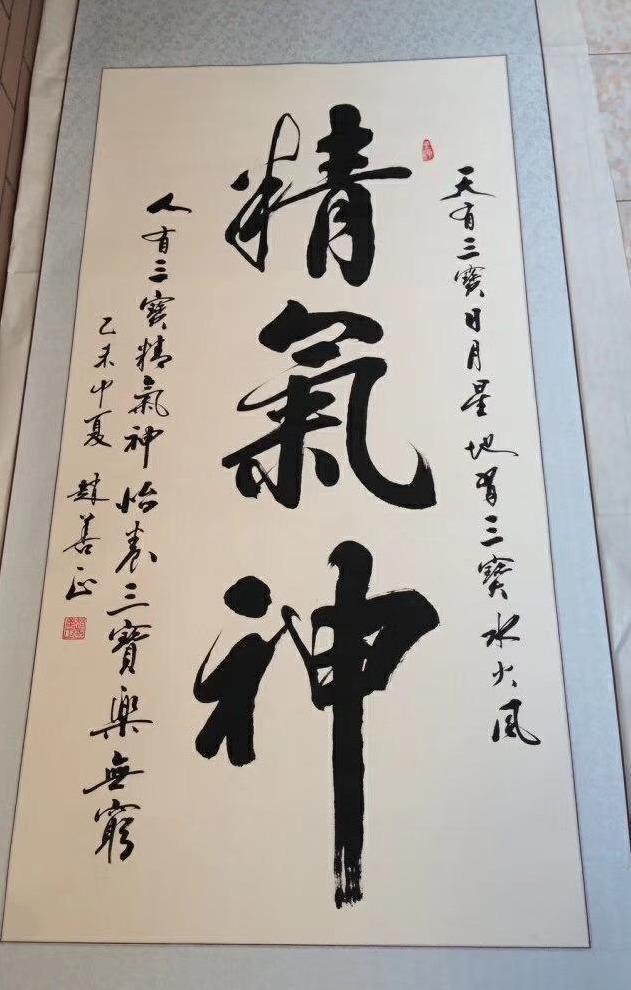 天有三寳日月星地有三寳水火風
精氣神
人有三寳精氣神怡養三寶樂無窮
乙未中夏 趙善正